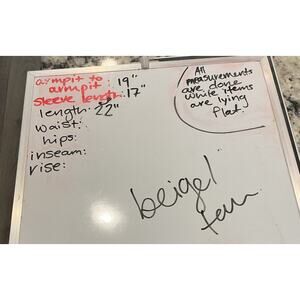 armpit to
armpit : 19"
sleeve length: 17"
length: 22"
waist:
hips:
inseam:
rise:
All
measurements
are done
while items
are lying
flat.
beige/
tan